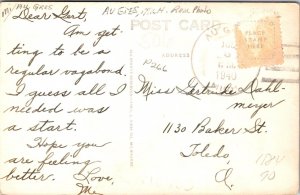 AU GRES, MICH. Real Photo
POST CARD
Dear Gert,
Am get-
ting to be a
regular vagabond.
I guess all I
needed was
a start.
Hope you
are feeling
better. Love,
ADDRESS
PLACE
STAMP
HERE
AU G
1940
Miss Gertrude Dahl-
meyer
1130 Baker St.
Toledo,
O.